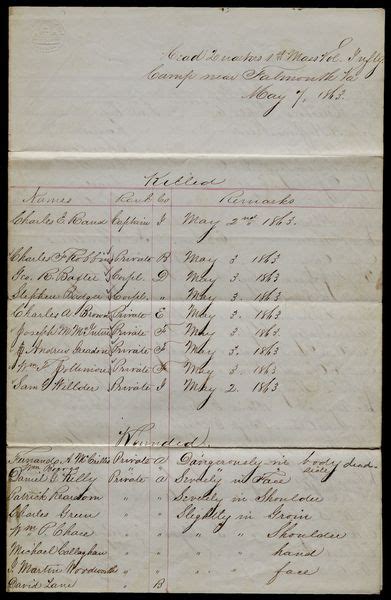 Head Quarters 1st Mass Vol. Infty
Camp near Falmouth Va
May 7, 1863.
Killed
Names Rank Co Remarks
Charles E. Rand Captain I May 2nd 1863.
Charles F Robbins Private B May 3 1863
Geo. R. Baxter Corpl. D May 3. 1863
Stephen Corpl. " May 3. 1863
Charles A Brown Private E May 3. 1863
Joseph M McIntire Private F May 3. 1863.
Andrew Private F May 3. 1863
Wm F. Private F May 3. 1863
Sam Private I May 2. 1863
Wounded.
A. Private A Dangerously in body dead.
side
Daniel G. Kelly Private A Severely in Face
Patrick " " Severely in Shoulder
Charles Green " " Slightly in Groin
Wm P. Chase " " " " Shoulder
Michael Callaghan " " " " hand
J. Martin Woodworth " " " " face
David Lane " B